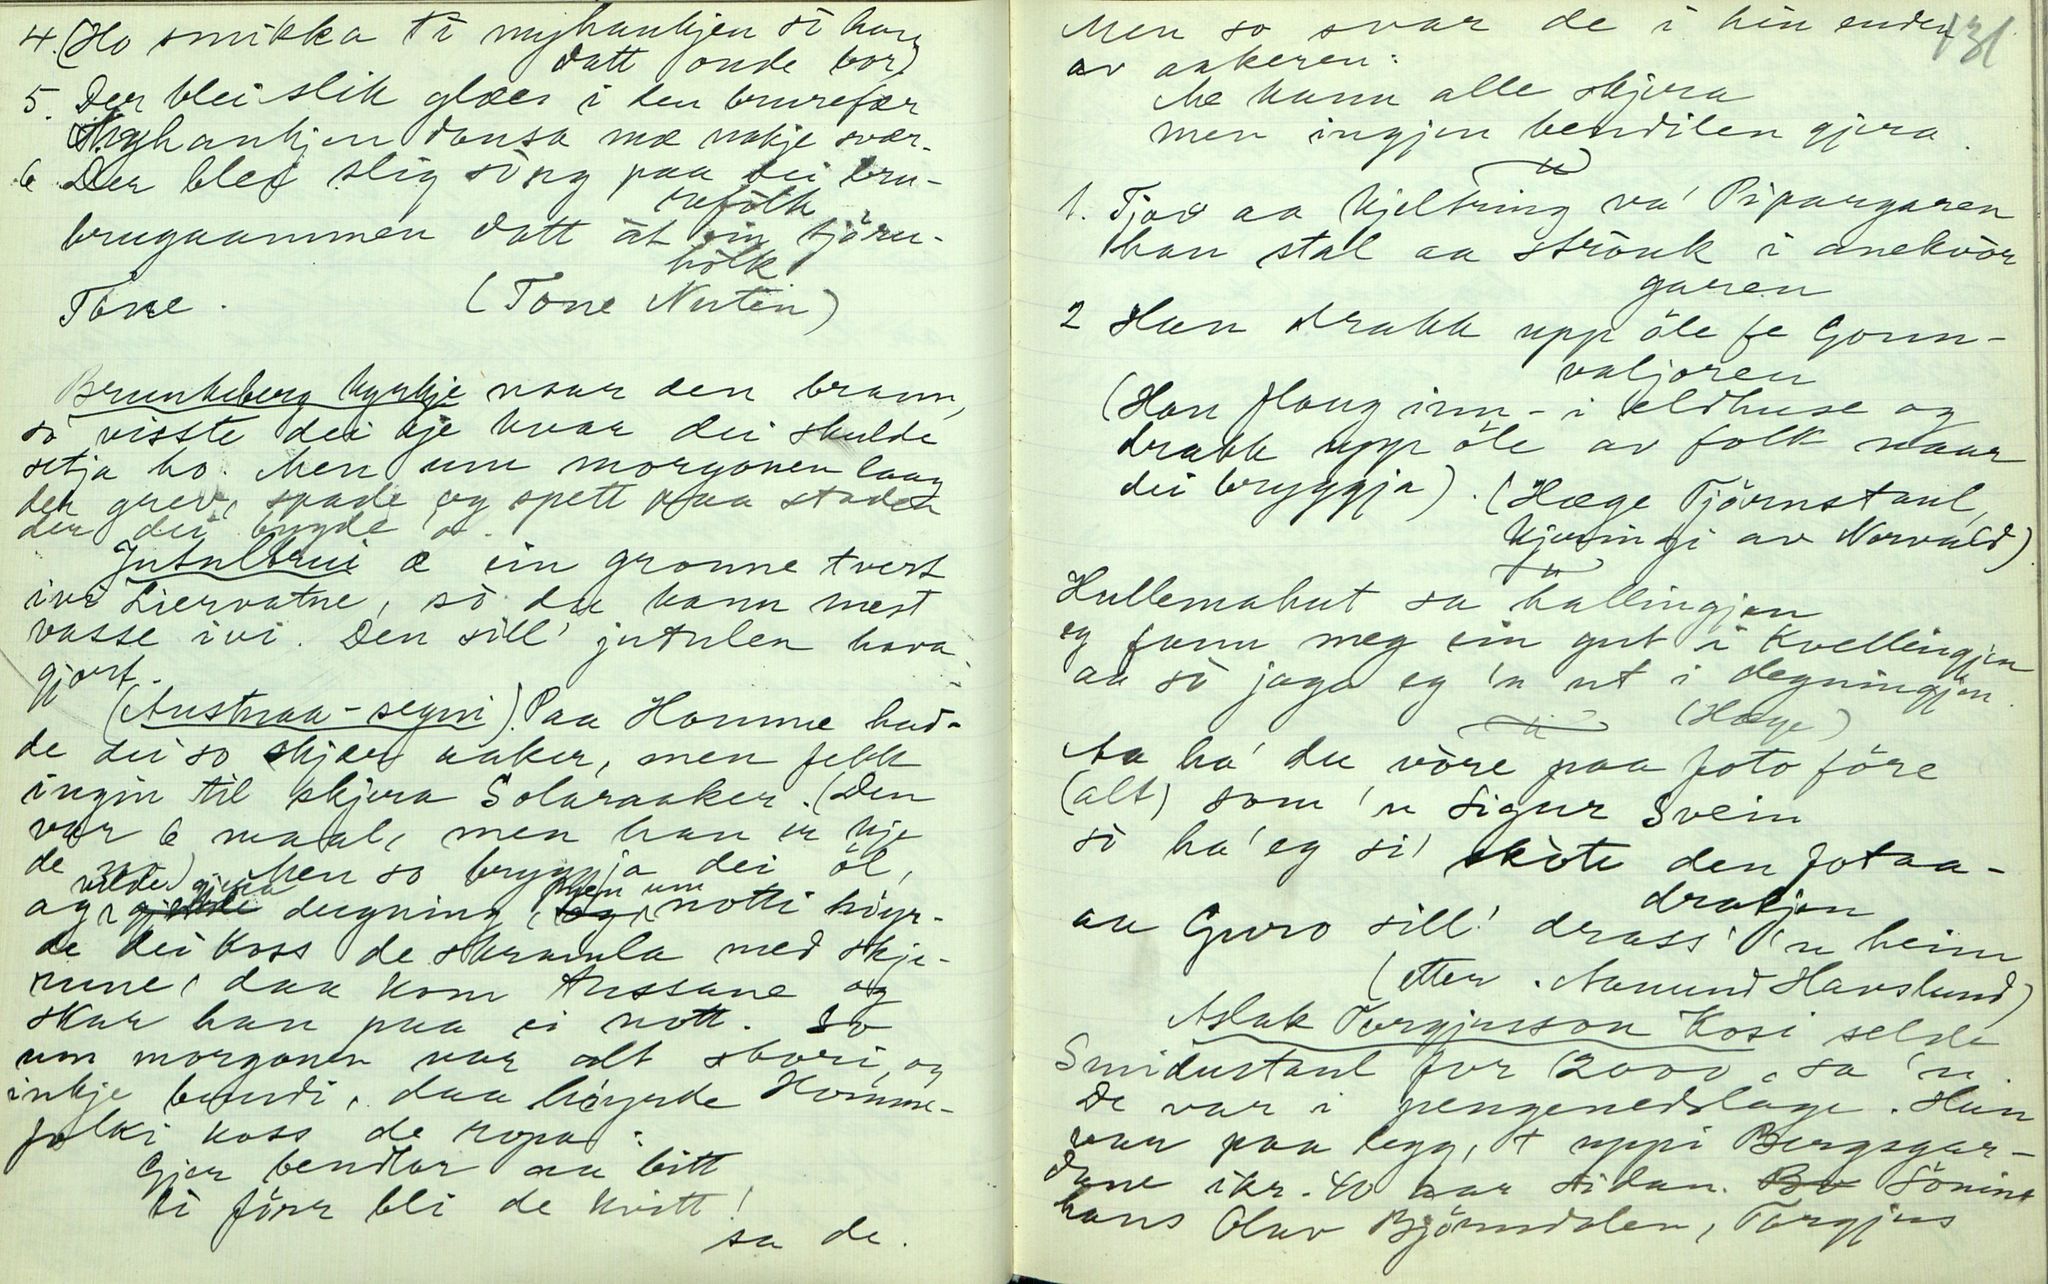 4. (Ho smikka ti nyhankjen si han
datt onde bor)
5. Der blei slik glæer i den brurefær
Nyhankjen dansa mæ nakje svær.
6 Der blei slig sòng paa dei bru-
refòlk
brugaammen datt åt ein tjöru-
hòlk
Tone. (Tone Nutin)
Brunkeberg kyrkje naar den brann,
so visste dei kje kvar dei skulde
setja ho. Men um morgonen laag
der grev, spade og spett paa staden
der dei bygde o.
Jutulbrui æ ein gronne tvert
ivi Liervatne, sò du kann mest
vasse ivi. Den sill' jutulen hava
gjort.
(Austraa-segni). Paa Homme had-
de dei so skjær aaker, men fekk
ingin til skjera Solaraaker. (Den
var 6 maal, men han er kje
de no) Men so bryggja dei öl,
vilde gjera Men um
og deigning, notti höyr-
de dei koss de skramla med skje-
rune, daa kom tussane og
skar han paa ei nott. So
um morgonen var alt skori, og
inkje bundi, daa höyrde Homme-
folki koss de ropa:
Gjer bendlar aa bitt
ti förr bli de kvitt!
sa de.
131
Men so svar de i hin enden
av aakeren:
Me kann alle skjera
men ingjen bendilen gjera.
1. Tjov aa kjeltring va' Pipargaren
han stal aa stròuk i anekvòr
garen
2 Han drakk upp öle fe Gonn-
valjoren
(Han flaug inn i eldhuse og
drakk upp öle av folk naar
dei bryggja). (Hæge Tjörnstaul,
kjeringi av Norvald)
Hullemahut sa hallingjen
eg fann meg ein gut i kvellingjen
aa sò jaga eg 'n ut i degningjen.
(Hæge)
Aa ha' du vòre paa foto före
(alt) som 'n Sigur Svein
sò ha' eg si' skòte den fotaa-
drakjen
aa Guro sill' drass' 'n heim
(etter Aamund Havslund)
Aslak Torgjusson Kosi selde
Smidustaul for 12000, sa 'n.
De var i pengenedslage. Han
var paa legg, + uppi Bergsgar-
dane ikr. 40 aar sidan. Sönine
hans Olav Björndalen, Torgjus